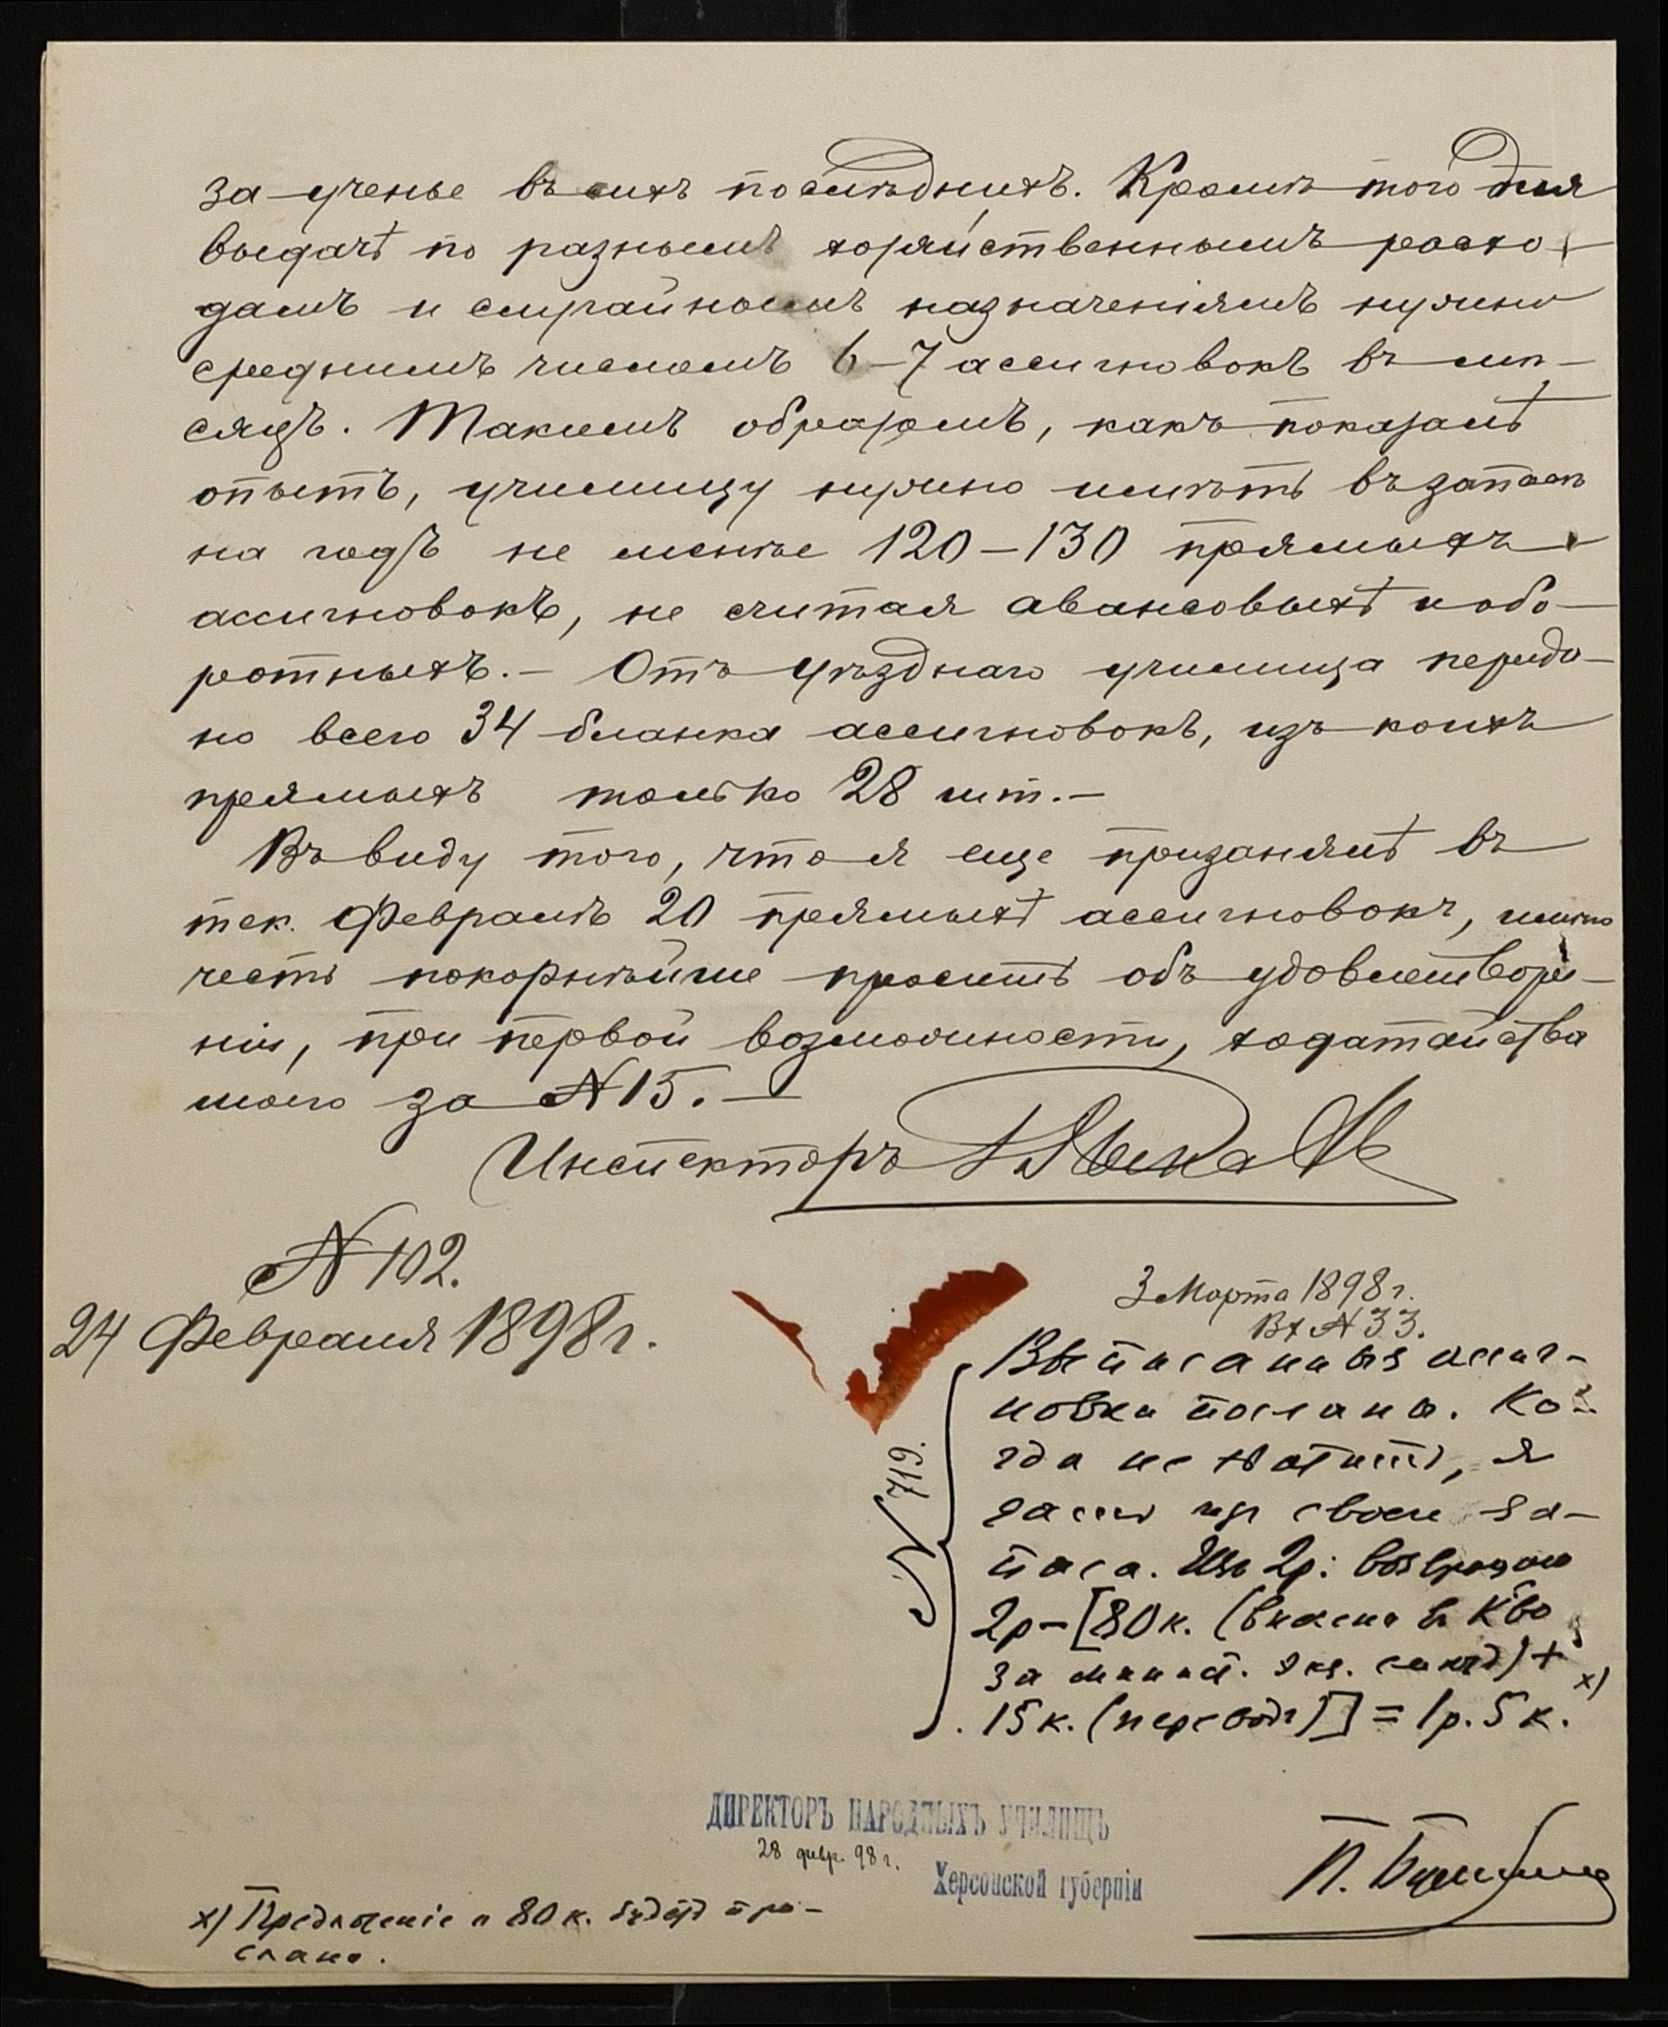 за ученье въ сихъ послѣднихъ. Кромѣ того для
выдачъ по разнымъ хозяйственнымъ расхо-
дамъ и случайнымъ назначеніямъ нужно
среднимъ числомъ 6–7 ассигновокъ въ мѣ-
сяцъ. Такимъ образомъ, какъ показалъ
опытъ, училищу нужно имѣть въ запасѣ
на годъ не менѣе 120–130 прямыхъ
ассигновокъ, не считая авансовыхъ и обо-
ротныхъ.– Отъ уѣзднаго училища переда-
но всего 34 бланка ассигновокъ, изъ коихъ
прямыхъ только 28 шт.–
Въ виду того, что я еще призанялъ въ
тек. Февралѣ 20 прямыхъ ассигновокъ, имѣю
честь покорнѣйше просить объ удовлетворе-
ніи, при первой возможности, ходатайства
моего за № 15.–
Инспекторъ
№ 102.
24 Февраля 1898 г.
3 Марта 1898 г.
Вх № 33.
№ 719.
Выписанныя ассиг-
новки посланы. Ко-
гда не хватитъ, я
дамъ изъ своего за-
паса. Изъ 2р: возвращаю
2р–[80к. (
за экз. )+ х)
15к. (переводъ)] = 1р. 5 к.
ДИРЕКТОРЪ НАРОДНЫХЪ УЧИЛИЩЪ
28 февр. 98 г.
Херсонской губерніи
П.
х) Предложеніе о 80 к. будетъ при-
слано.